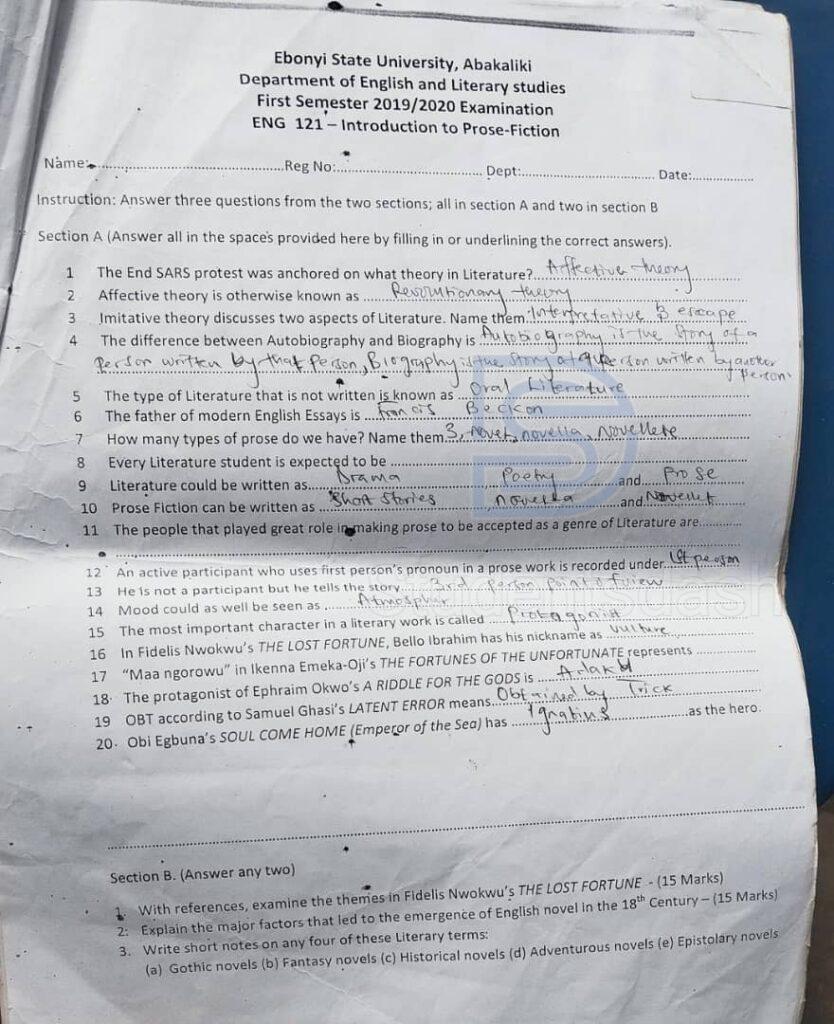 Ebonyi State University, Abakaliki
Department of English and Literary studies
First Semester 2019/2020 Examination
ENG 121 – Introduction to Prose-Fiction
Name:..........................................Reg No:.................................. Dept:................................ Date:...............
Instruction: Answer three questions from the two sections; all in section A and two in section B
Section A (Answer all in the spaces provided here by filling in or underlining the correct answers).
1 The End SARS protest was anchored on what theory in Literature?...Affective theory
2 Affective theory is otherwise known as ......Revolutionary theory
3 Imitative theory discusses two aspects of Literature. Name them.Interpretative & escape
4 The difference between Autobiography and Biography is Autobiography is the story of a
person written by that person, Biography is the story of a person written by another
person.
5 The type of Literature that is not written is known as ...Oral Literature
6 The father of modern English Essays is ...Francis Beckon
7 How many types of prose do we have? Name them 3, novel, novella, Novellete
8 Every Literature student is expected to be ..................................................
9 Literature could be written as...Drama............Poetry............and...Prose
10 Prose Fiction can be written as ...Short Stories............novella............and Novellet
11 The people that played great role in making prose to be accepted as a genre of Literature are............
12 An active participant who uses first person's pronoun in a prose work is recorded under...1st person
13 He is not a participant but he tells the story......3rd person point of view
14 Mood could as well be seen as ......Atmospher
15 The most important character in a literary work is called ......Protagonist
16 In Fidelis Nwokwu's THE LOST FORTUNE, Bello Ibrahim has his nickname as ...vulture
17 "Maa ngorowu" in Ikenna Emeka-Oji's THE FORTUNES OF THE UNFORTUNATE represents ..................
18. The protagonist of Ephraim Okwo's A RIDDLE FOR THE GODS is ......
19 OBT according to Samuel Ghasi's LATENT ERROR means...Obtained by Trick
20. Obi Egbuna's SOUL COME HOME (Emperor of the Sea) has ...Ignatius............as the hero.
Section B. (Answer any two)
1. With references, examine the themes in Fidelis Nwokwu's THE LOST FORTUNE - (15 Marks)
2: Explain the major factors that led to the emergence of English novel in the 18th Century – (15 Marks)
3. Write short notes on any four of these Literary terms:
(a) Gothic novels (b) Fantasy novels (c) Historical novels (d) Adventurous novels (e) Epistolary novels